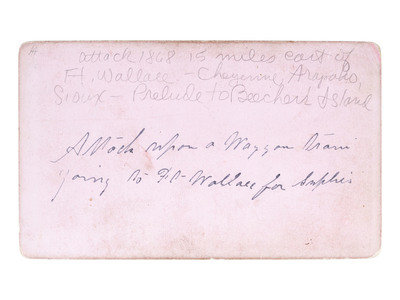 attack 1868 15 miles east of
Ft. Wallace. - Cheyenne, Arapaho,
Sioux - Prelude to Beechers Island
Attack upon a Waggon train
going to Ft- Wallace for